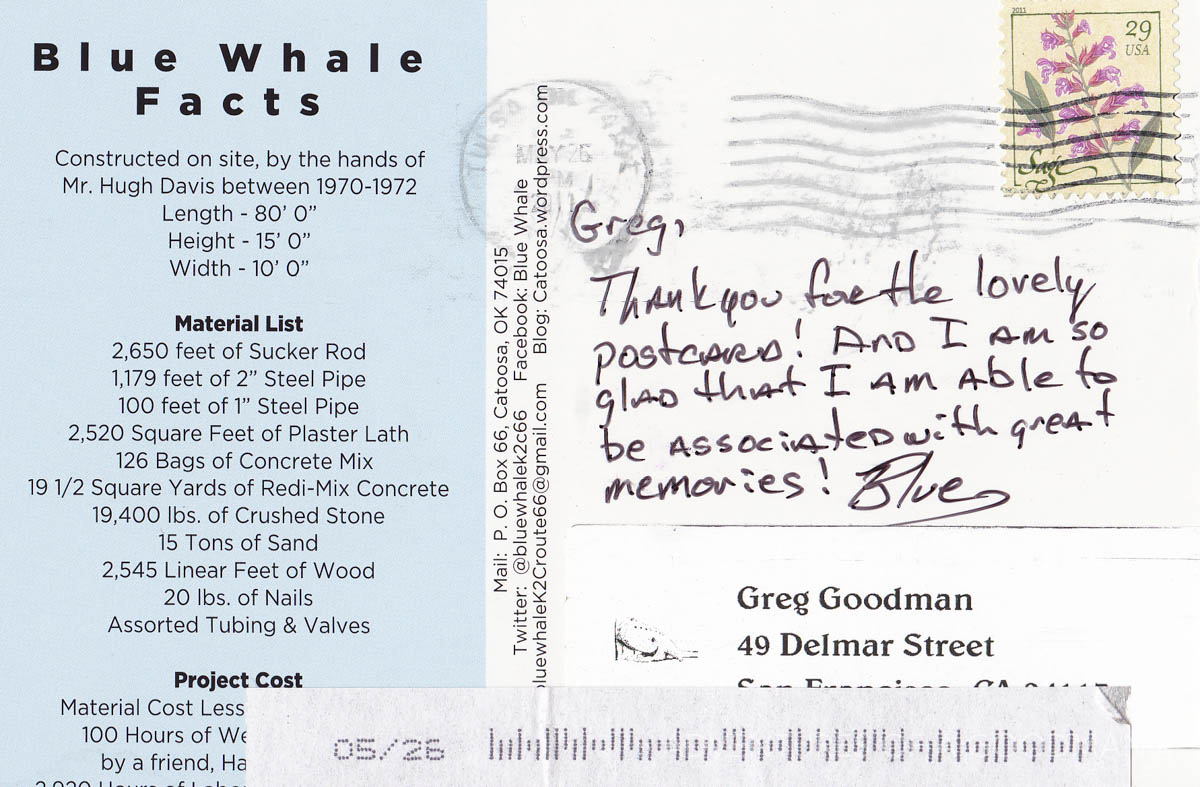 Blue Whale
Facts
Constructed on site, by the hands of
Mr. Hugh Davis between 1970-1972
Length - 80’ 0”
Height - 15’ 0”
Width - 10’ 0”
Material List
2,650 feet of Sucker Rod
1,179 feet of 2” Steel Pipe
100 feet of 1” Steel Pipe
2,520 Square Feet of Plaster Lath
126 Bags of Concrete Mix
19 1/2 Square Yards of Redi-Mix Concrete
19,400 lbs. of Crushed Stone
15 Tons of Sand
2,545 Linear Feet of Wood
20 lbs. of Nails
Assorted Tubing & Valves
Project Cost
Material Cost Less
100 Hours of We
by a friend, Ha
Mail: P. O. Box 66, Catoosa, OK 74015
Twitter: @bluewhalek2c66 Facebook: Blue Whale
bluewhaleK2Croute66@gmail.com Blog: Catoosa.wordpress.com
MAY 26
2011
29
USA
Sage
Greg,
Thank you for the lovely
postcard! And I am so
glad that I am able to
be associated with great
memories! Blue
Greg Goodman
49 Delmar Street
San Francisco, CA
05/26